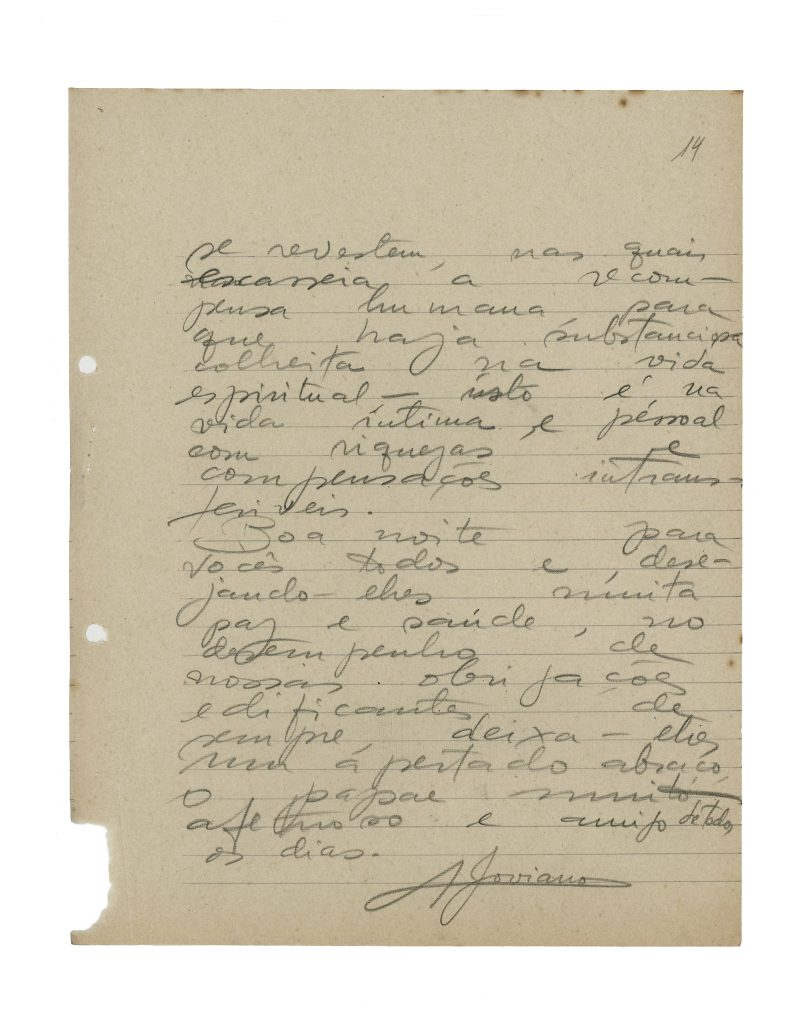 14
se revestem, nas quais
escasseia a recom-
pensa humana para
que haja substanciosa
colheita na vida
espiritual - isto é na
vida íntima e pessoal
com riquezas e
compensações intrans-
feríveis.
Boa noite para
vocês todos e dese-
jando-lhes muita
paz e saúde, no
desempenho de
nossas obrigações
edificantes de
sempre, deixa-lhes
um apertado abraço,
o papae muito
afetuoso e amigo de todos
os dias.
A Joviano